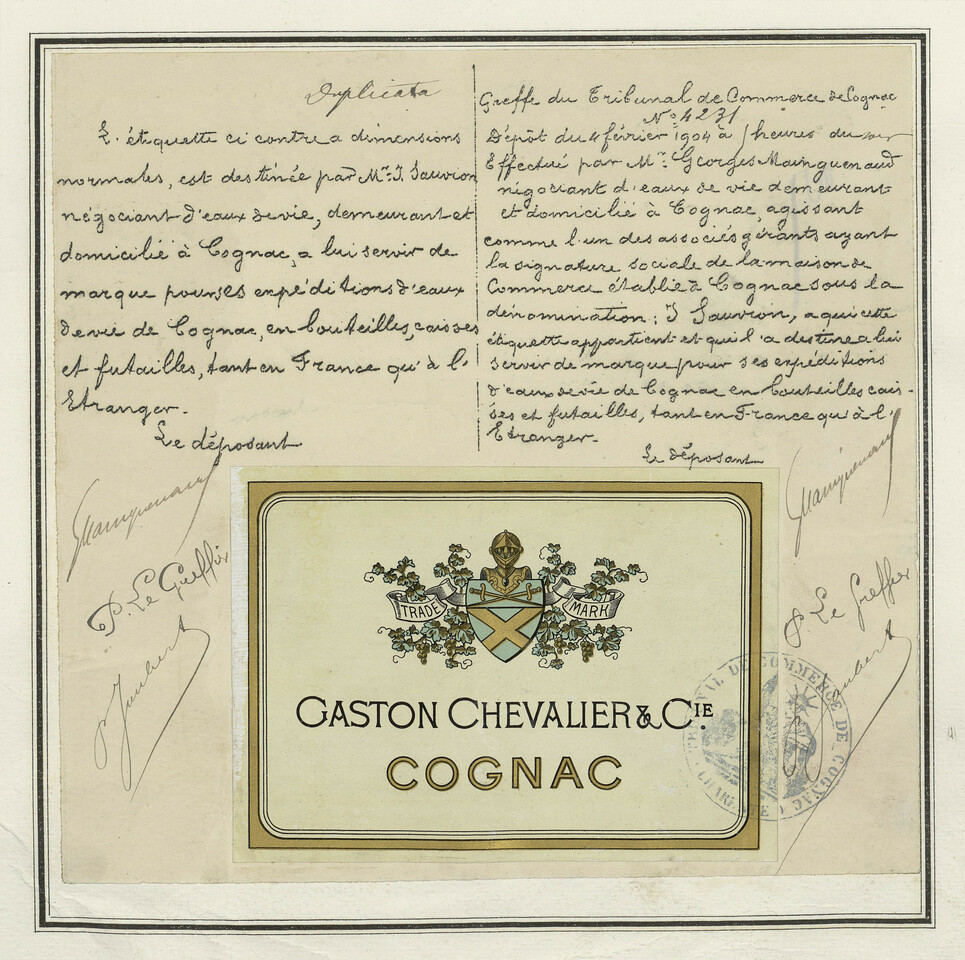 Duplicata
L'étiquette ci contre a dimensions
normales, est destinée par Mr. J. Sauvion
négociant d'eaux de vie, demeurant et
domicilié à Cognac, a lui servir de
marque pour ses expéditions d'eaux
de vie de Cognac, en bouteilles, caisses
et futailles, tant en France qu'à l'
Etranger.
Le déposant
GMainguenaud
P. Le Greffier
Joubert
Greffe du Tribunal de Commerce de Cognac
No. 4231
Dépôt du 4 février 1904 à heures du soir
Effectué par Mr. Georges Mainguenaud
négociant d'eaux de vie demeurant
et domicilié à Cognac, agissant
comme l'un des associés gérants ayant
la signature sociale de la maison de
Commerce établie à Cognac sous la
dénomination: J Sauvion, a qui cette
étiquette appartient et qu'il a destiné a lui
servir de marque pour ses expéditions
d'eaux de vie de Cognac en bouteilles cais-
ses et futailles, tant en France qu'à l'
Etranger.
Le déposant
GMainguenaud
P. Le Greffier
Joubert
TRADE MARK
GASTON CHEVALIER & CIE.
COGNAC
TRIBUNAL DE COMMERCE DE COGNAC